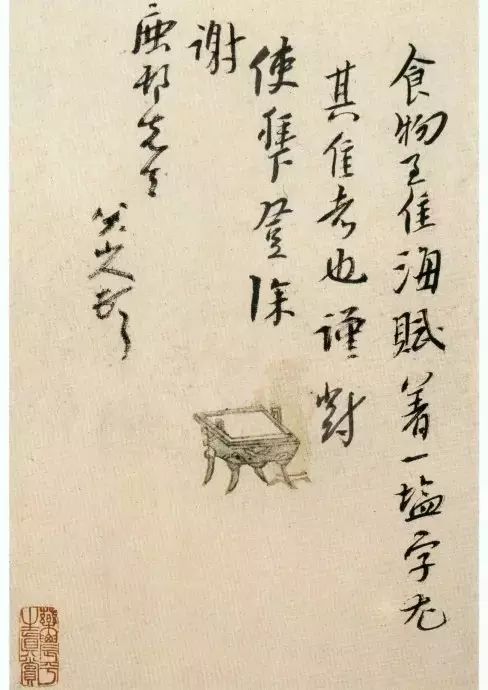 食物至佳海賦着一塩字尤
其佳者也謹對
使拜登餘
謝
鹿邨先生
八大山人頓首